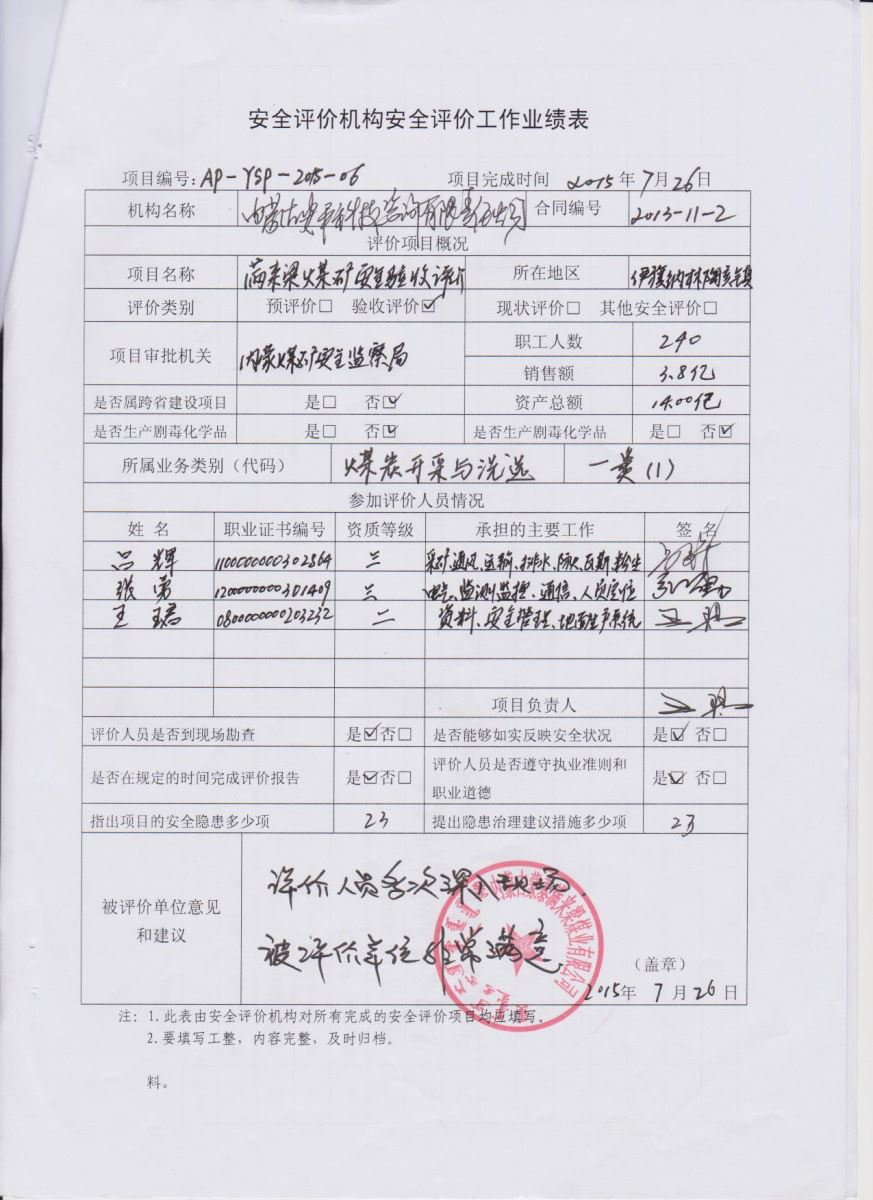 安全评价机构安全评价工作业绩表
项目编号:AP-YSP-2015-06 项目完成时间 2015年7月26日
机构名称 内蒙古 科技咨询有限责任公司 合同编号 2013-11-2
评价项目概况
项目名称 满来梁煤矿安全验收评价 所在地区 伊旗纳林陶亥镇
评价类别 预评价□ 验收评价☑ 现状评价□ 其他安全评价□
项目审批机关 内蒙煤矿安全监察局 职工人数 240
销售额 3.8亿
是否属跨省建设项目 是□ 否☑ 资产总额 14.00亿
是否生产剧毒化学品 是□ 否☑ 是否生产剧毒化学品 是□ 否☑
所属业务类别（代码） 煤炭开采与洗选 一类(1)
参加评价人员情况
姓 名 职业证书编号 资质等级 承担的主要工作 签 名
吕辉 1100000000302864 三 采矿、通风、运输、排水、防火、瓦斯、粉尘
张勇 1200000000301409 三 电气、监测监控、通信、人员定位 张勇
王珺 0800000000203232 二 资料、安全管理、地面生产系统 王珺
项目负责人 王珺
评价人员是否到现场勘查 是☑否□ 是否能够如实反映安全状况 是☑ 否□
是否在规定的时间完成评价报告 是☑否□ 评价人员是否遵守执业准则和
职业道德 是☑ 否□
指出项目的安全隐患多少项 23 提出隐患治理建议措施多少项 23
被评价单位意见
和建议
评价人员多次深入现场,
被评价单位非常满意
（盖章）
2015年 7月26日
注：1.此表由安全评价机构对所有完成的安全评价项目均应填写。
2.要填写工整，内容完整，及时归档。
料。